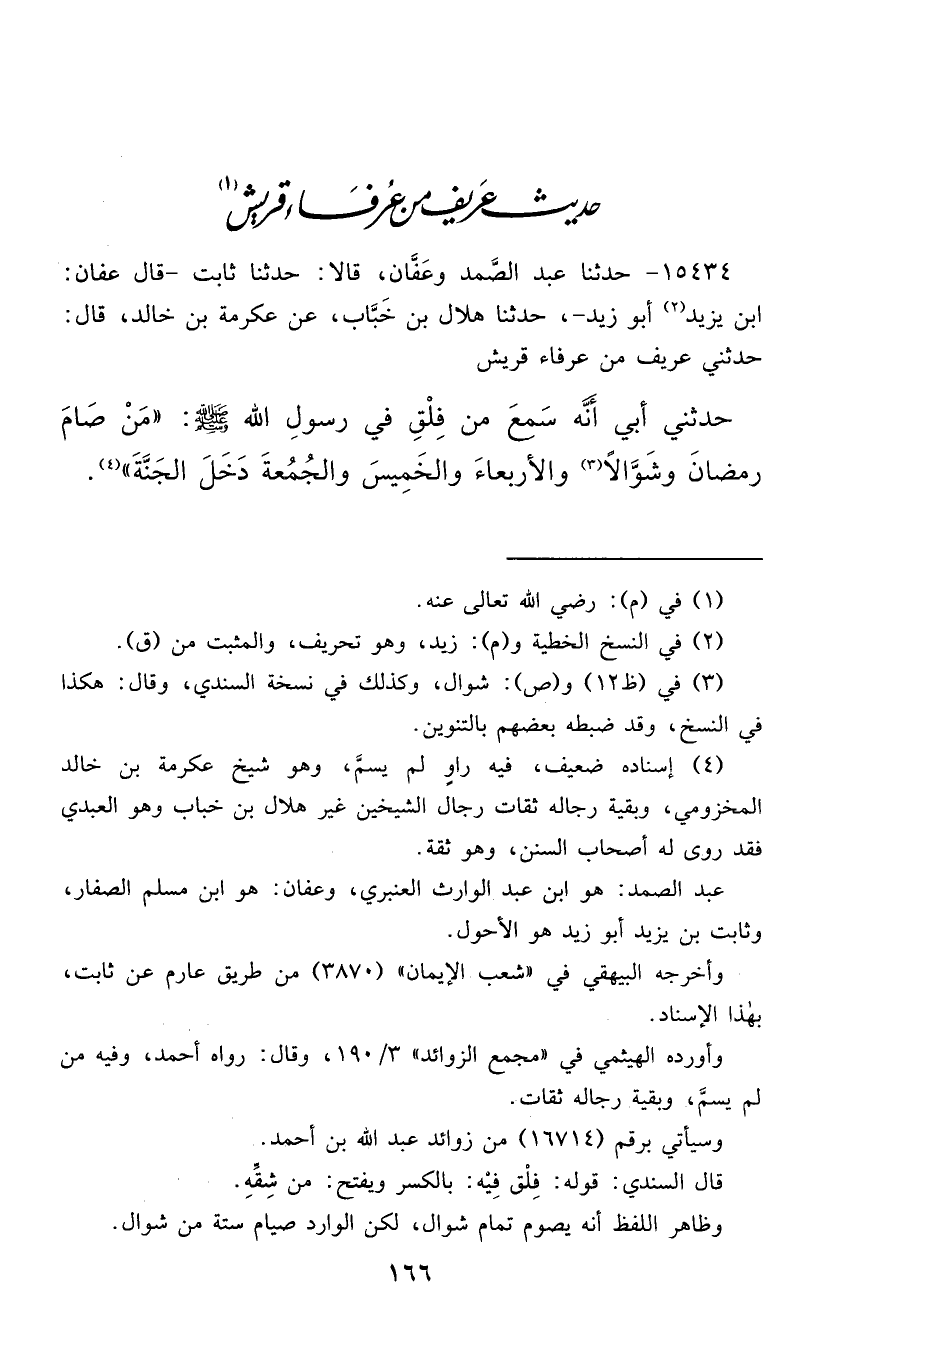 حديث عريف من عُرفَاء قريش(١)
١٥٤٣٤- حدثنا عبد الصَّمد وعَفَّان، قالا: حدثنا ثابت -قال عفان:
ابن يزيد(٢) أبو زيد-، حدثنا هلال بن خَبَّاب، عن عكرمة بن خالد، قال:
حدثني عريف من عرفاء قريش
حدثني أبي أَنَّه سَمِعَ من فِلْقِ في رسولِ الله ﷺ: «مَنْ صَامَ
رمضانَ وشَوَّالاً(٣) والأربعاءَ والخَمِيسَ والجُمُعةَ دَخَلَ الجَنَّةَ»(٤).
(١) في (م): رضي الله تعالى عنه.
(٢) في النسخ الخطية و(م): زيد، وهو تحريف، والمثبت من (ق).
(٣) في (ظ١٢) و(ص): شوال، وكذلك في نسخة السندي، وقال: هكذا
في النسخ، وقد ضبطه بعضهم بالتنوين.
(٤) إسناده ضعيف، فيه راوٍ لم يسمَّ، وهو شيخ عكرمة بن خالد
المخزومي، وبقية رجاله ثقات رجال الشيخين غير هلال بن خباب وهو العبدي
فقد روى له أصحاب السنن، وهو ثقة.
عبد الصمد: هو ابن عبد الوارث العنبري، وعفان: هو ابن مسلم الصفار،
وثابت بن يزيد أبو زيد هو الأحول.
وأخرجه البيهقي في «شعب الإيمان» (٣٨٧٠) من طريق عارم عن ثابت،
بهٰذا الإسناد.
وأورده الهيثمي في «مجمع الزوائد» ١٩٠/٣، وقال: رواه أحمد، وفيه من
لم يسمَّ، وبقية رجاله ثقات.
وسيأتي برقم (١٦٧١٤) من زوائد عبد الله بن أحمد.
قال السندي: قوله: فِلْق فِيْه: بالكسر ويفتح: من شِقِّهِ.
وظاهر اللفظ أنه يصوم تمام شوال، لكن الوارد صيام ستة من شوال.
١٦٦